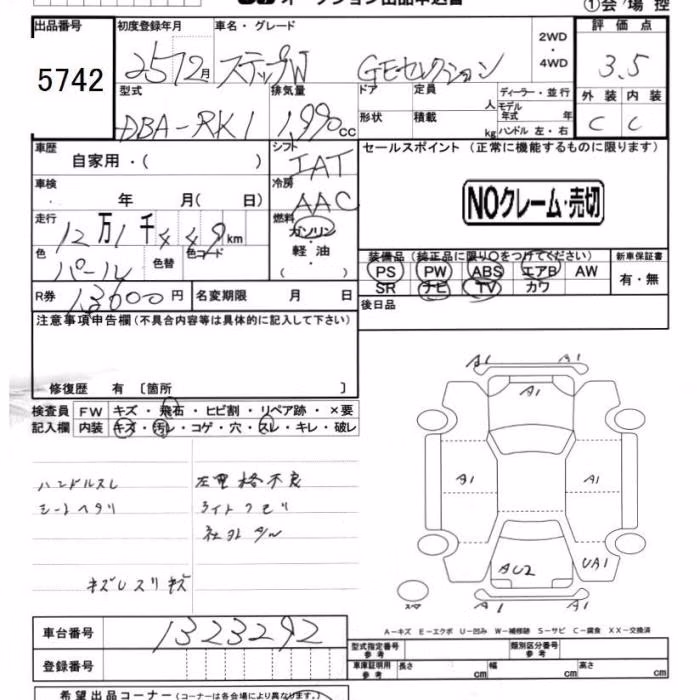 オークション出品申込書
①会場控
出品番号 5742
初度登録年月 25 12月
車名・グレード ステップW Gモ-セレクション
2WD・4WD
評価点 3.5
外装 C 内装 C
型式 DBA-RK1
排気量 1,990cc
ドア 形状
定員 人 積載 kg
ディーラー・並行
モデル年式 年
ハンドル 左・右
車歴 自家用・( )
シフト IAT
セールスポイント (正常に機能するものに限ります)
NOクレーム・売切
車検 年 月( 日)
冷房 AAC
走行 12万1千449km
燃料 ガソリン・軽油・( )
色 パール 色替 色コード
装備品 (純正品に限り○をつけてください)
PS PW ABS エアB AW
SR ナビ TV カワ
新車保証書 有・無
R券 13000円 名変期限 月 日
後日品
注意事項申告欄 (不具合内容等は具体的に記入して下さい)
修復歴 有 〔箇所 〕
検査員記入欄
FW キズ・飛石・ヒビ割・リペア跡・×要
内装 キズ・汚レ・コゲ・穴・スレ・キレ・破レ
ハンドルスレ
シートヘタリ
左電格不良
ライトクモリ
社外ナビ
キズUスリキズ
A1 A1
A1
A1 A1
AU2 UA1
A1 A1
スペア
A-キズ E-エクボ U-凹み W-補修跡 S-サビ C-腐食 XX-交換済
車台番号 1323292
登録番号
型式指定番号 参考
類別区分番号 参考
車庫証明用 参考 長さ cm 幅 cm 高さ cm
希望出品コーナー (コーナーは各会場により異なります。)